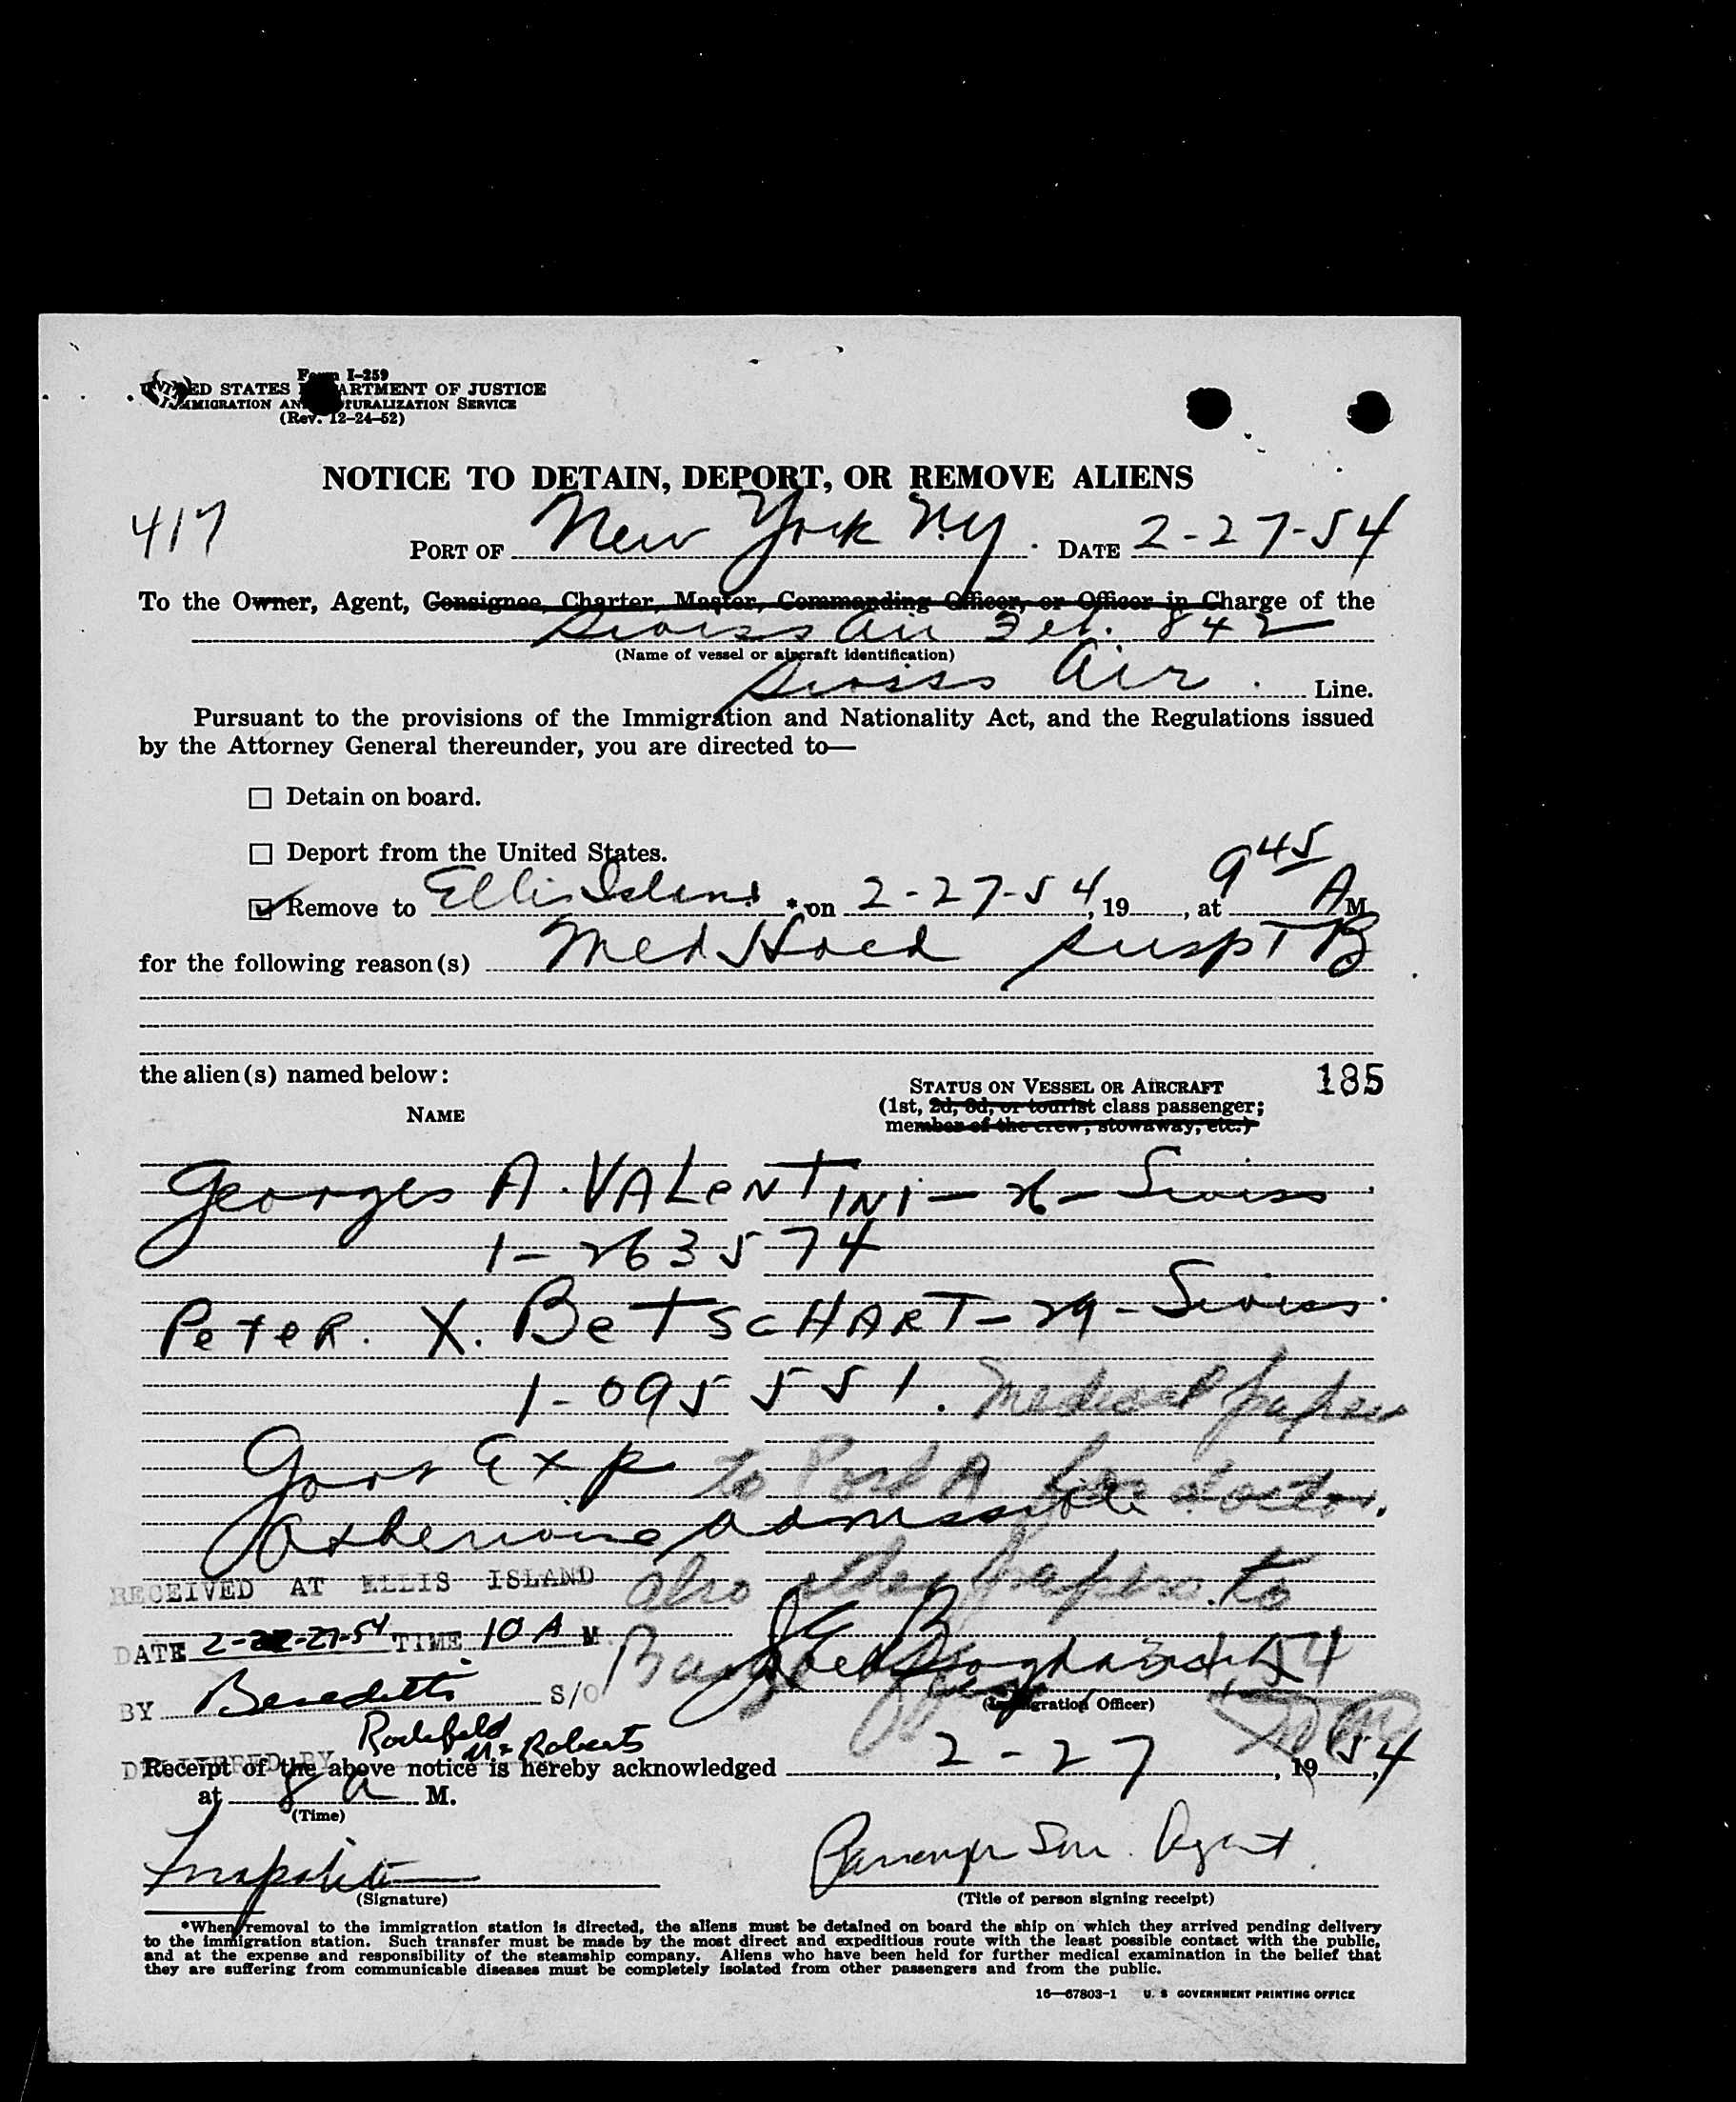 Form I-259
UNITED STATES DEPARTMENT OF JUSTICE
IMMIGRATION AND NATURALIZATION SERVICE
(Rev. 12-24-52)
NOTICE TO DETAIN, DEPORT, OR REMOVE ALIENS
417
PORT OF New York N.Y. DATE 2-27-54
To the Owner, Agent, Consignee, Charter, Master, Commanding Officer, or Officer in Charge of the
Swiss Air 842
(Name of vessel or aircraft identification)
Swiss Air. Line.
Pursuant to the provisions of the Immigration and Nationality Act, and the Regulations issued
by the Attorney General thereunder, you are directed to—
Detain on board.
Deport from the United States.
Remove to Ellis Island * on 2-27-54, 19 , at 9 45 A M
for the following reason(s) Med Hold susp TB
the alien(s) named below:
185
NAME
STATUS ON VESSEL OR AIRCRAFT
(1st, 2d, 3d, or tourist class passenger;
member of the crew, stowaway, etc.)
Georges A. VALENTINI - 26 - Swiss
1-263574
PETER. X. BETSCHART - 29 - Swiss.
1-095551.
Medical papers
Govt Exp
to Ward A for doctor.
Otherwise admissible
also other papers to
RECEIVED AT ELLIS ISLAND
DATE 2-27-54 TIME 10 A M.
3-1-54
BY Benedetti S/O
(Immigration Officer)
DELIVERED BY Rochfeld Mr Roberts
Receipt of the above notice is hereby acknowledged 2-27, 1954,
at 8 a M.
(Time)
Passenger Serv. Agent.
(Signature)
(Title of person signing receipt)
*When removal to the immigration station is directed, the aliens must be detained on board the ship on which they arrived pending delivery
to the immigration station. Such transfer must be made by the most direct and expeditious route with the least possible contact with the public,
and at the expense and responsibility of the steamship company. Aliens who have been held for further medical examination in the belief that
they are suffering from communicable diseases must be completely isolated from other passengers and from the public.
16—67803-1 U. S GOVERNMENT PRINTING OFFICE